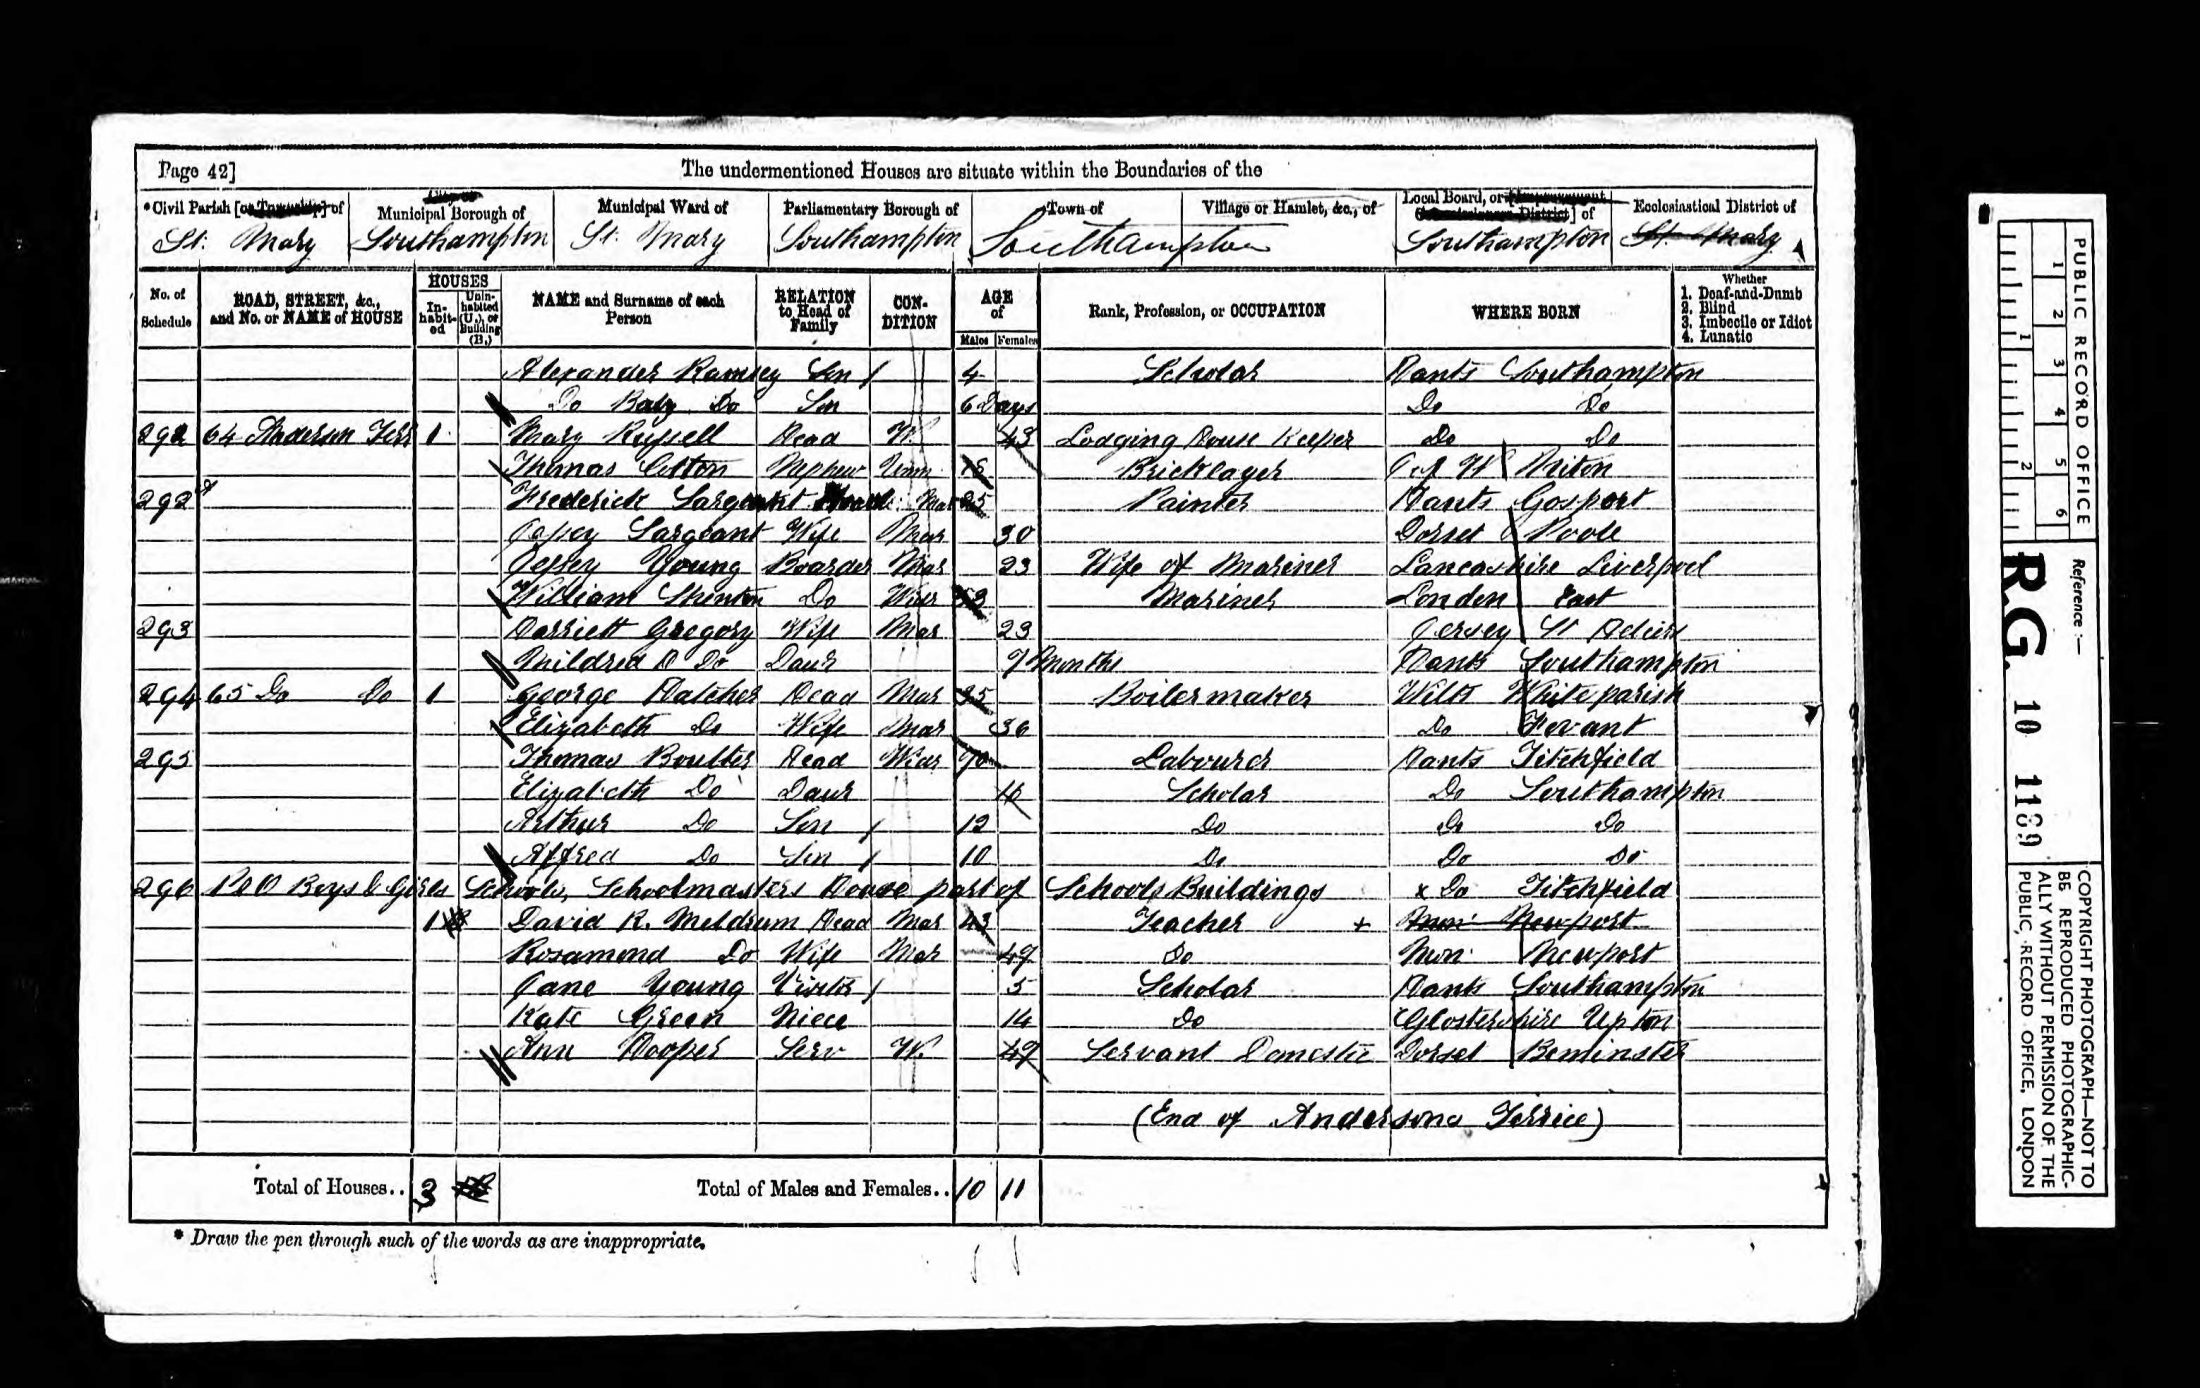 Page 42]
The undermentioned Houses are situate within the Boundaries of the
*Civil Parish [or Township] of
Municipal Borough of
Municipal Ward of
Parliamentary Borough of
Town of
Village or Hamlet, &c., of
Local Board, or [Improvement Commissioners District] of
Ecclesiastical District of
St. Mary Southampton St. Mary Southampton Southampton Southampton St. Mary
No. of Schedule
ROAD, STREET, &c., and No. or NAME of HOUSE
HOUSES
In-habit-ed
Unin-habited (U.), or Building (B.)
NAME and Surname of each Person
RELATION to Head of Family
CON-DITION
AGE of
Males Females
Rank, Profession, or OCCUPATION
WHERE BORN
Whether
1. Deaf-and-Dumb
2. Blind
3. Imbecile or Idiot
4. Lunatic
Alexander Ramsey Son 4 Scholar Hants Southampton
Do Baby Do Son 6 Days Do Do
292 64 Anderson Terr 1 Mary Russell Head W. 43 Lodging House Keeper Do Do
Thomas Cotton Nephew Unm 18 Bricklayer I of W Niton
292 Frederick Sargeant Mar 25 Painter Hants Gosport
Jessey Sargeant Wife Mar 30 Dorset Poole
Jessey Young Boarder Mar 23 Wife of Mariner Lancashire Liverpool
William Shenton Do Widr Mariner London East
293 Harriett Gregory Wife Mar 23 Jersey St Heliers
Mildred H Do Daur 9 Months Hants Southampton
294 65 Do Do 1 George Hatcher Head Mar 35 Boilermaker Wilts Whiteparish
Elizabeth Do Wife Mar 36 Do Fovant
295 Thomas Boulter Head Widr 70 Labourer Hants Titchfield
Elizabeth Do Daur Scholar Do Southampton
Arthur Do Son 12 Do Do Do
Alfred Do Son 10 Do Do Do
296 P&O Boys & Girls Schools, Schoolmasters House part of Schools Buildings x Do Titchfield
1 David R. Meldrum Head Mar 43 Teacher + Mon: Newport
Rosamond Do Wife Mar 49 Do Mon: Newport
Jane Young Visitor 5 Scholar Hants Southampton
Kate Green Niece 14 Do Glostershire Upton
Ann Hooper Serv W. 49 Servant Domestic Dorset Beminster
(End of Andersons Terrice)
Total of Houses.. 3
Total of Males and Females.. 10 11
* Draw the pen through such of the words as are inappropriate.
PUBLIC RECORD OFFICE
1 2 3 4 5 6
1 2
Reference:—
R.G. 10 1189
COPYRIGHT PHOTOGRAPH—NOT TO
BE REPRODUCED PHOTOGRAPHIC-
ALLY WITHOUT PERMISSION OF THE
PUBLIC RECORD OFFICE, LONDON